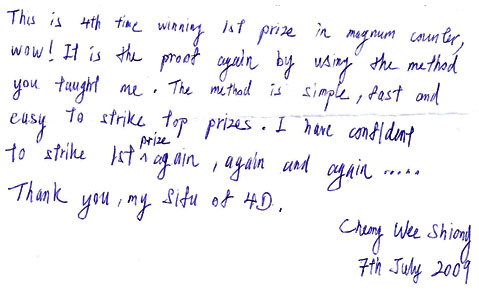 This is 4th time winning 1st prize in magnum counter,
wow! It is the proof again by using the method
you taught me. The method is simple, fast and
easy to strike top prizes. I have confident
to strike 1st prize again, again and again .....
Thank you, my sifu of 4D.
Cheong Wee Shiong
7th July 2009